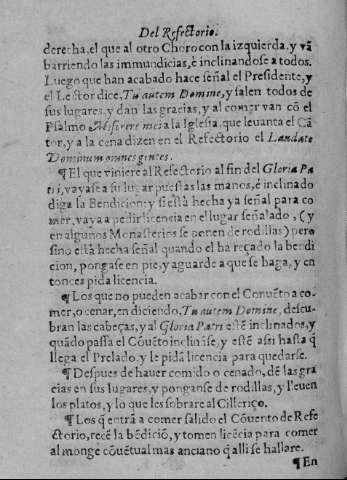 Del Refectorio.
derecha, el que al otro Choro con la izquierda, y vã
barriendo las immundicias, è inclinandose a todos.
Luego que han acabado hace señal el Presidente, y
el Lector dice, Tu autem Domine, y salen todos de
sus lugares, y dan las gracias, y al comer van cõ el
Psalmo Miserere mei a la Iglesia, que levanta el Cã
tor, y a la cena dizen en el Refectorio el Laudate
Dominum omnes gentes.
¶ El que viniere al Refectorio al fin del Gloria Pa
tri, vayase a su lugar puestas las manos, è inclinado
diga la Bendicion: y si està hecha ya señal para co
mer, vaya a pedir licencia en el lugar señalado, (y
en algunos Monasterios se ponen de rodillas) pero
sino està hecha señal quando el ha reçado la bendi
cion, pongase en pie, y aguarde a que se haga, y en
tonces pida licencia.
¶ Los que no pueden acabar con el Convẽto a co-
mer, o cenar, en diciendo, Tu autem Domine, descu-
bran las cabeças, y al Gloria Patri estẽ inclinados, y
quãdo passa el Cõvẽto inclinẽse, y estẽ assi hasta q̃
llega el Prelado, y le pidã licencia para quedarse.
¶ Despues de haver comido o cenado, dẽ las gra
cias en sus lugares, y ponganse de rodillas, y lleven
los platos, y lo que les sobrare al Cilleriço.
¶ Los q̃ entrã a comer salido el Cõvento de Refe
ctorio, recẽ la bẽdiciõ, y tomen licẽcia para comer
al monge cõvẽtual mas anciano q̃ alli se hallare.
¶ En